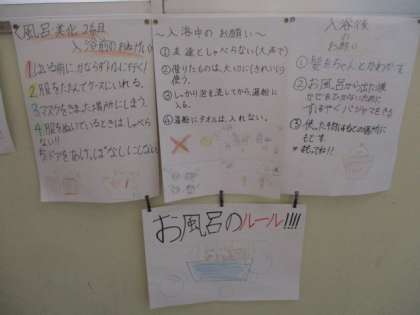 風呂 美化 2条目
入浴前のお願い
1.入る前に、かならずトイレに行く!
2.服をたたんでケースにいれる。
3.マスクをきまった場所にしまう。
4.服をぬいでいるときは、しゃべらない!!
5.ドアをあけっぱなしにしない
~入浴中のお願い~
①友達としゃべらない(大声で)
②借りたものは、大切に(きれいに)使う。
③しっかり泡を流してから、湯船に入る。
④湯船にタオルは、入れない。
入浴後
の
お願い
①髪をちゃんとかわかす
②お風呂から出た後
かぜをひかないために
すばやくパジャマをきる
③使った物はもとの場所に
もどす
お風呂のルール!!!!